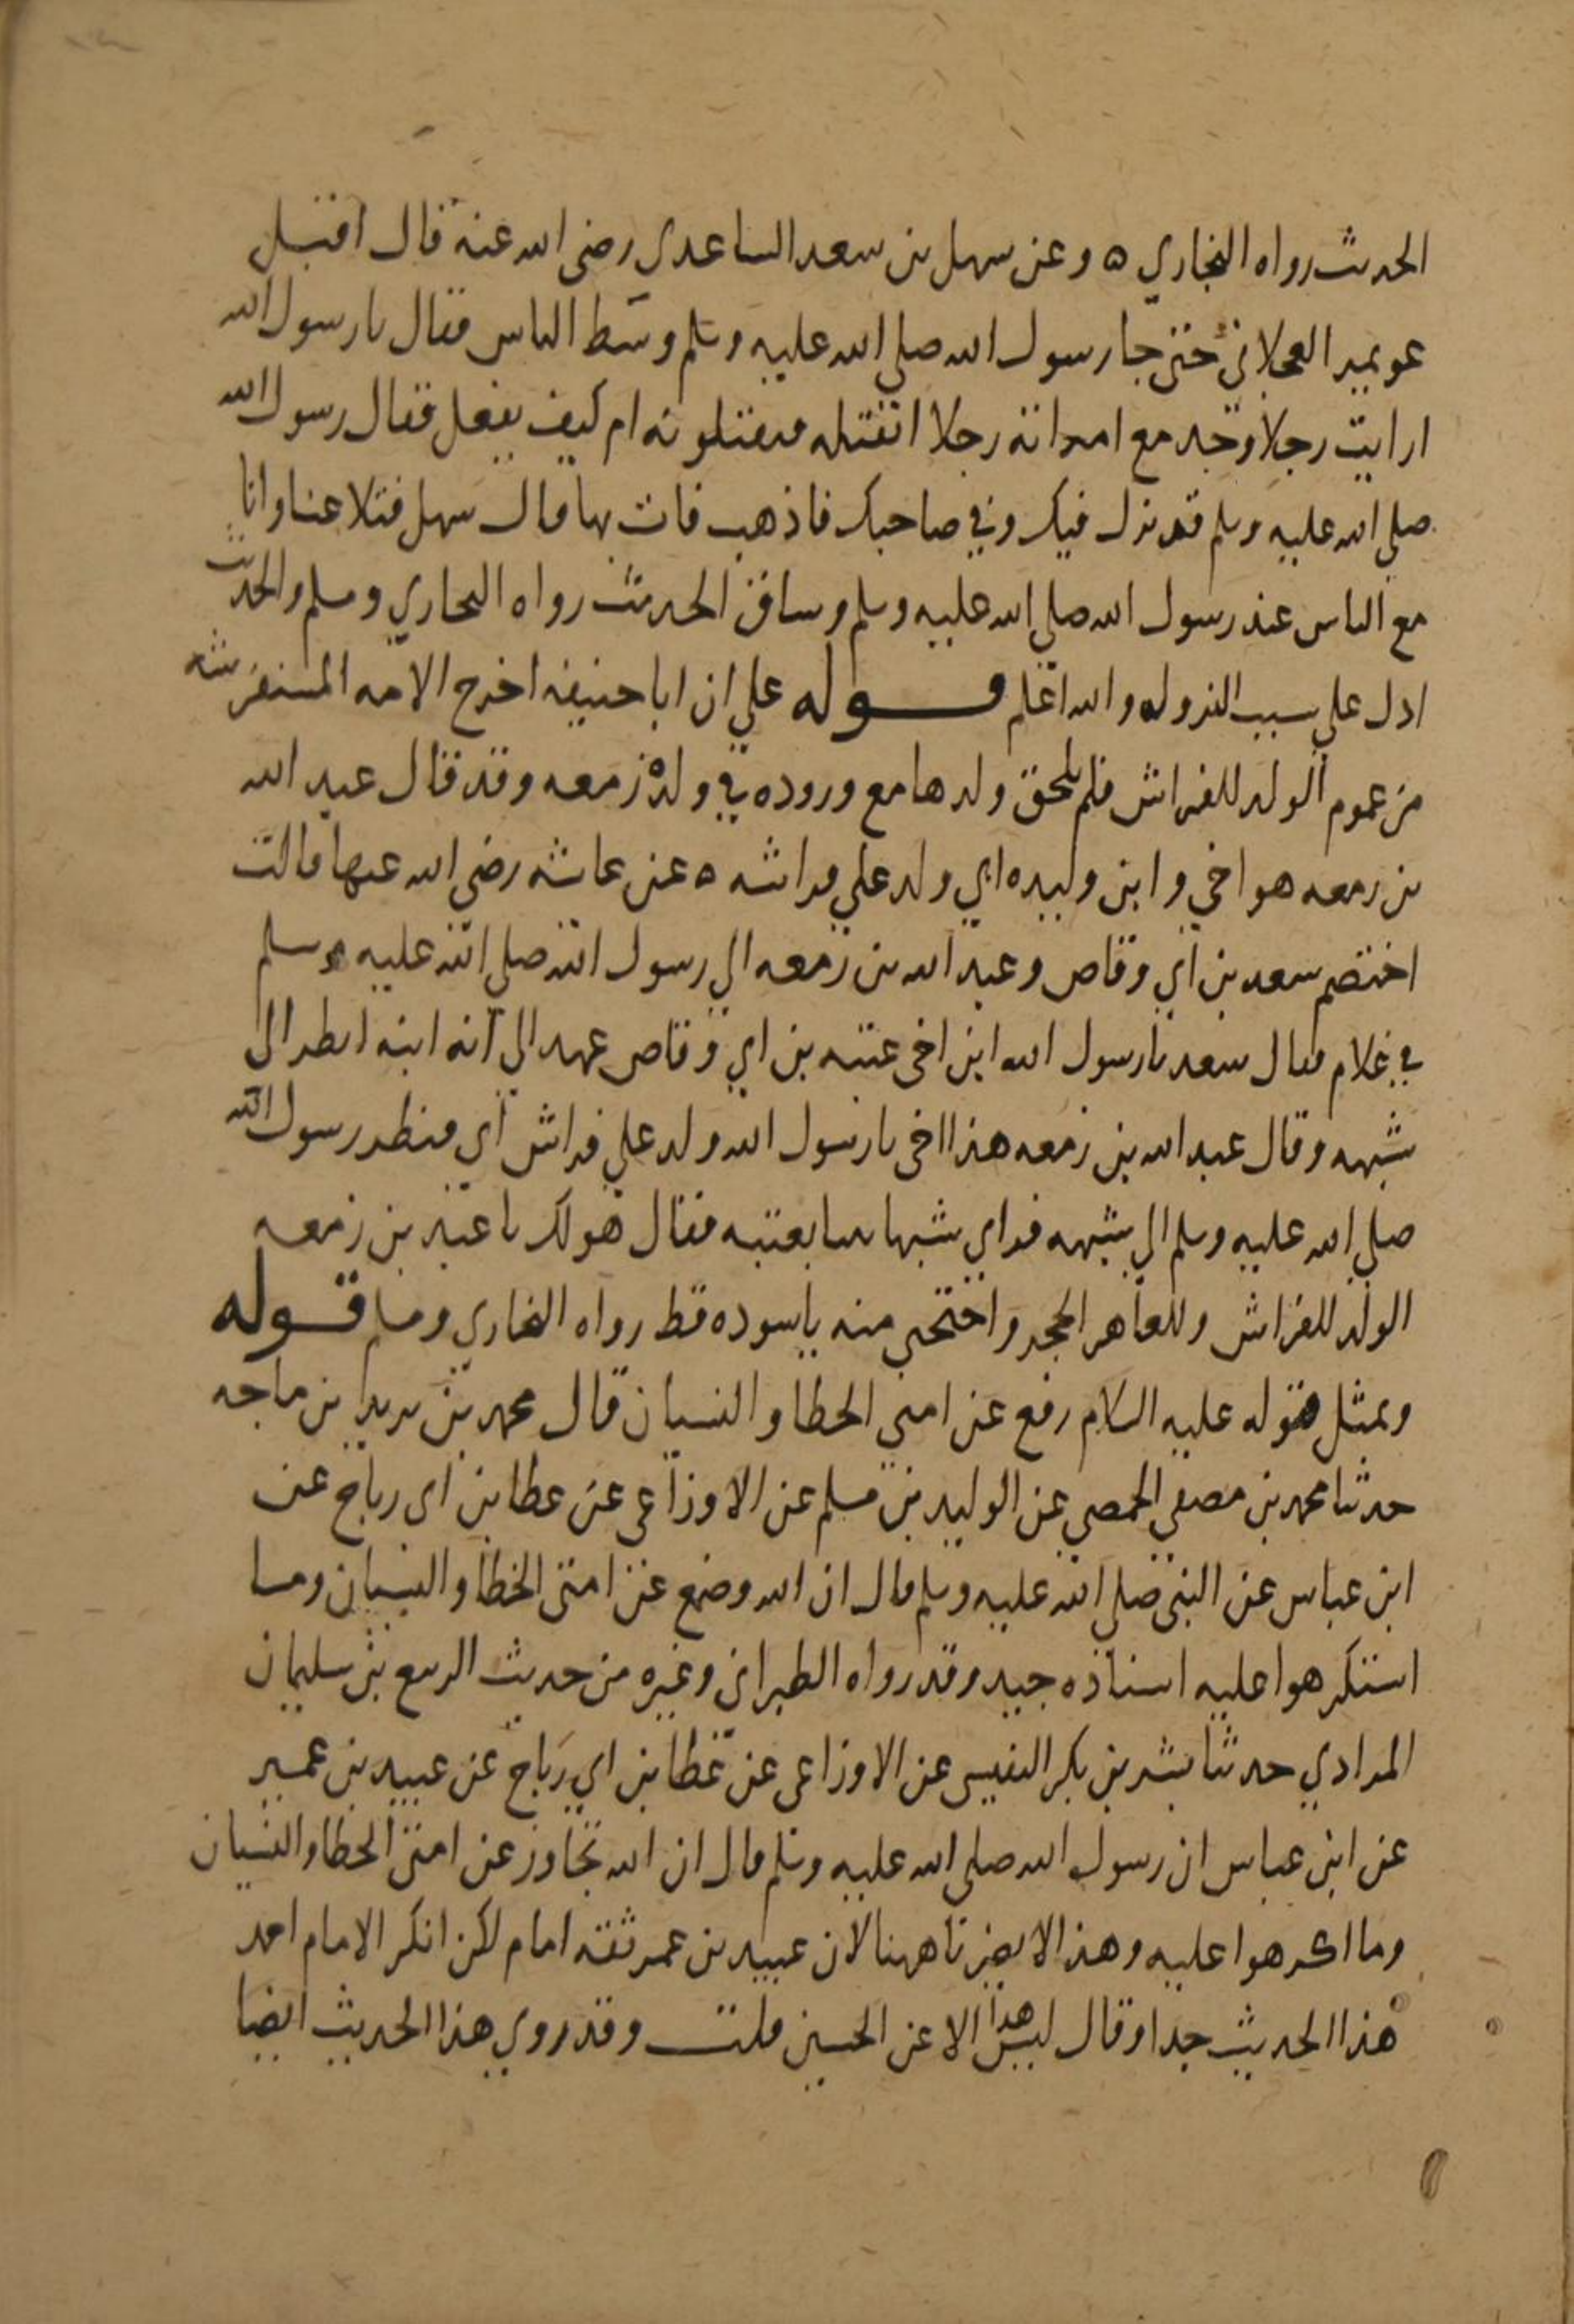 الحديث رواه البخاري ه وعن سهل بن سعد الساعدي رضي الله عنه قال اقبل
عويمر العجلاني حتى جا رسول الله صلى الله عليه وسلم وسط الناس فقال يا رسول الله
ارايت رجلا وجد مع امراته رجلا ايقتله فيقتلونه ام كيف يفعل فقال رسول الله
صلى الله عليه وسلم قد نزل فيك وفي صاحبك فاذهب فات بها قال سهل فتلاعنا وانا
مع الناس عند رسول الله صلى الله عليه وسلم وساق الحديث رواه البخاري ومسلم والحديث
ادل على سبب النزول والله اعلم قوله على ان ابا حنيفه اخرج الامه المستفرشه
من عموم الولد للفراش فلم يلحق ولدها مع وروده في ولد زمعه وقد قال عبد الله
بن زمعه هو اخي وابن وليده ابي ولد على فراشه ه عن عائشه رضي الله عنها قالت
اختصم سعد بن ابي وقاص وعبد الله بن زمعه الى رسول الله صلى الله عليه وسلم
في غلام فقال سعد يا رسول الله ابن اخي عتبه بن ابي وقاص عهد الي انه ابنه انظر الى
شبهه وقال عبد الله بن زمعه هذا اخي يا رسول الله ولد على فراش ابي فنظر رسول الله
صلى الله عليه وسلم الى شبهه فراى شبها بينا بعتبه فقال هو لك يا عبد بن زمعه
الولد للفراش وللعاهر الحجر واحتجبي منه يا سوده قط رواه البخاري ومسلم قوله
وبمثل قوله عليه السلام رفع عن امتي الخطا والنسيان قال محمد بن يزيد بن ماجه
حدثنا محمد بن مصفي الحمصي عن الوليد بن مسلم عن الاوزاعي عن عطا بن ابي رباح عن
ابن عباس عن النبي صلى الله عليه وسلم قال ان الله وضع عن امتي الخطا والنسيان وما
استكرهوا عليه اسناده جيد وقد رواه الطبراني وغيره من حديث الربيع بن سليمان
المرادي حدثنا بشر بن بكر التنيسي عن الاوزاعي عن عطا بن ابي رباح عن عبيد بن عمير
عن ابن عباس ان رسول الله صلى الله عليه وسلم قال ان الله تجاوز عن امتي الخطا والنسيان
وما اكرهوا عليه وهذا لا يضرنا ههنا لان عبيد بن عمر ثقه امام لكن انكر الامام احمد
هذا الحديث جدا وقال ليس هذا الا عن الحسن قلت وقد روي هذا الحديث ايضا